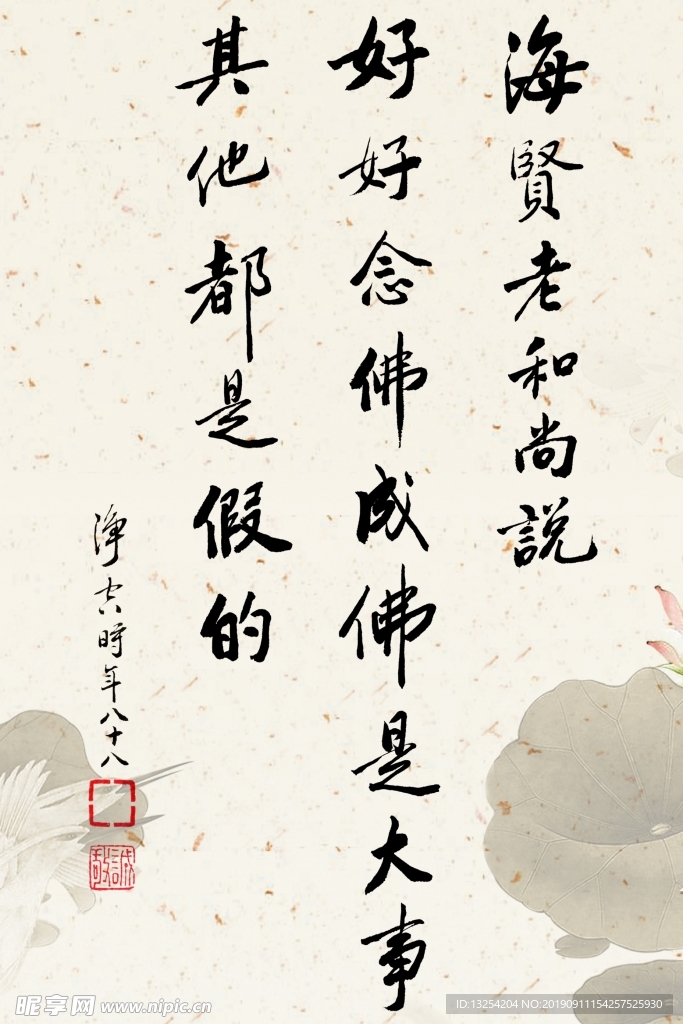 海賢老和尚說
好好念佛成佛是大事
其他都是假的
淨空時年八十八
誠敬
昵享网 www.nipic.cn
ID:13254204 NO:20190911154257525930